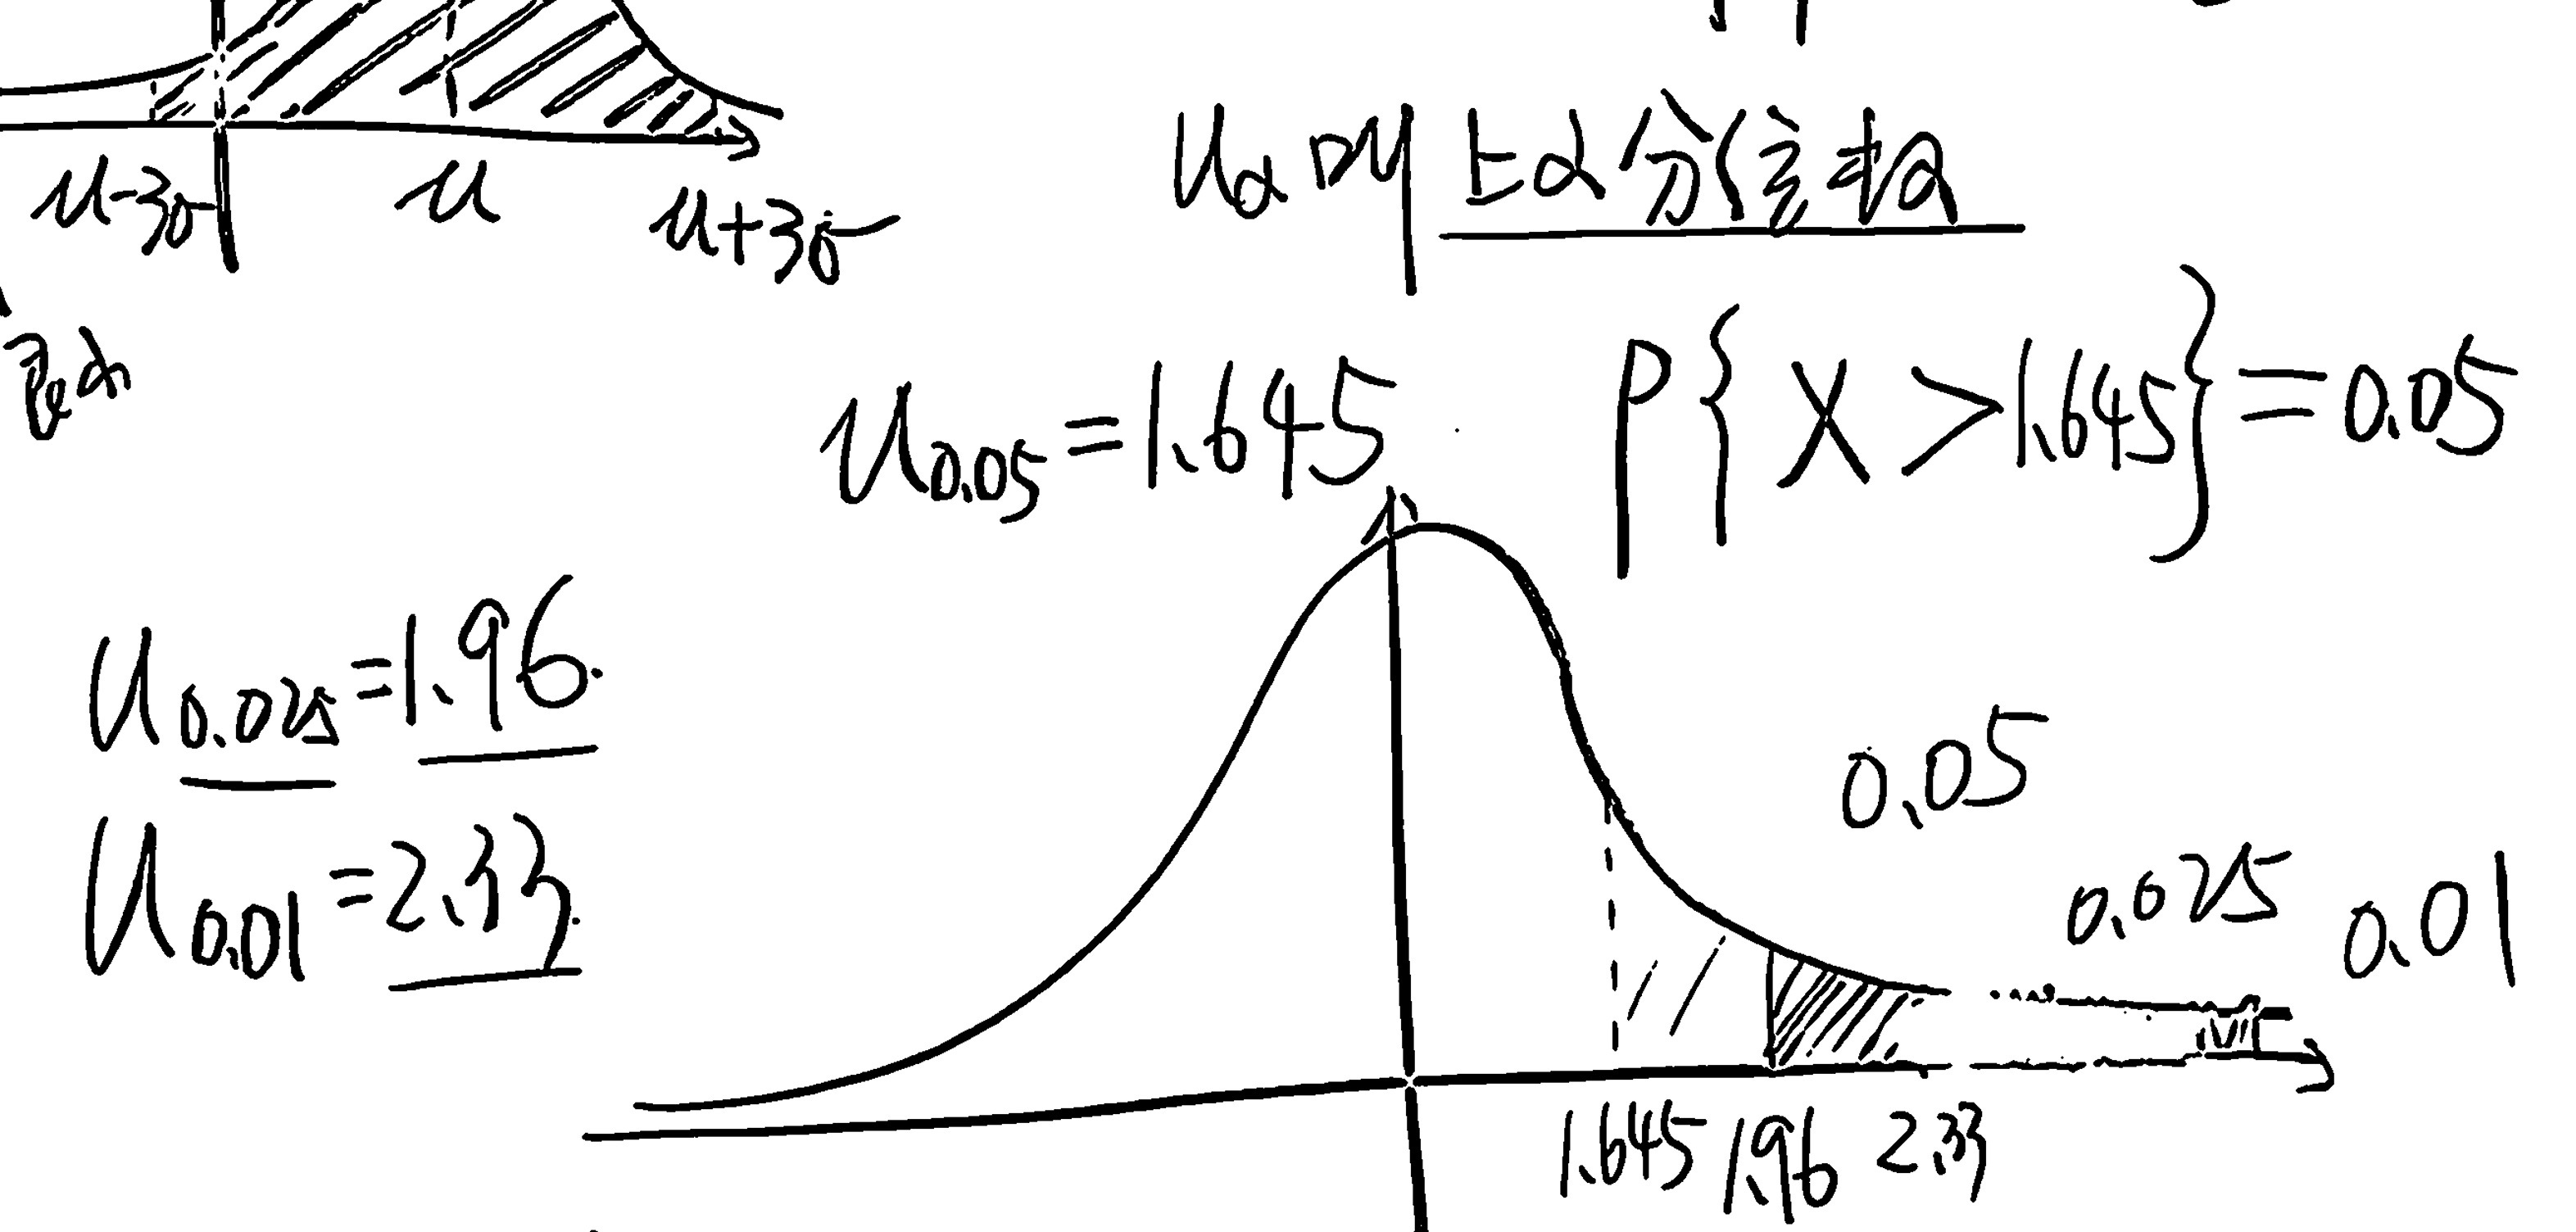 μ-3σ μ μ+3σ
U_α 叫 上α分位数
U_0.05 = 1.645
P{X > 1.645} = 0.05
U_0.025 = 1.96
U_0.01 = 2.33
0.05
0.025
0.01
1.645 1.96 2.33